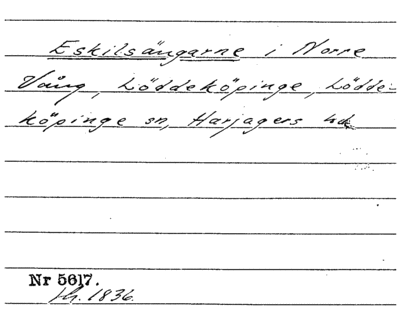 Eskilsängarne i Norre
Vång, Löddeköpinge, Lödde-
köpinge sn, Harjagers hd
Nr 5617.
th. 1836.